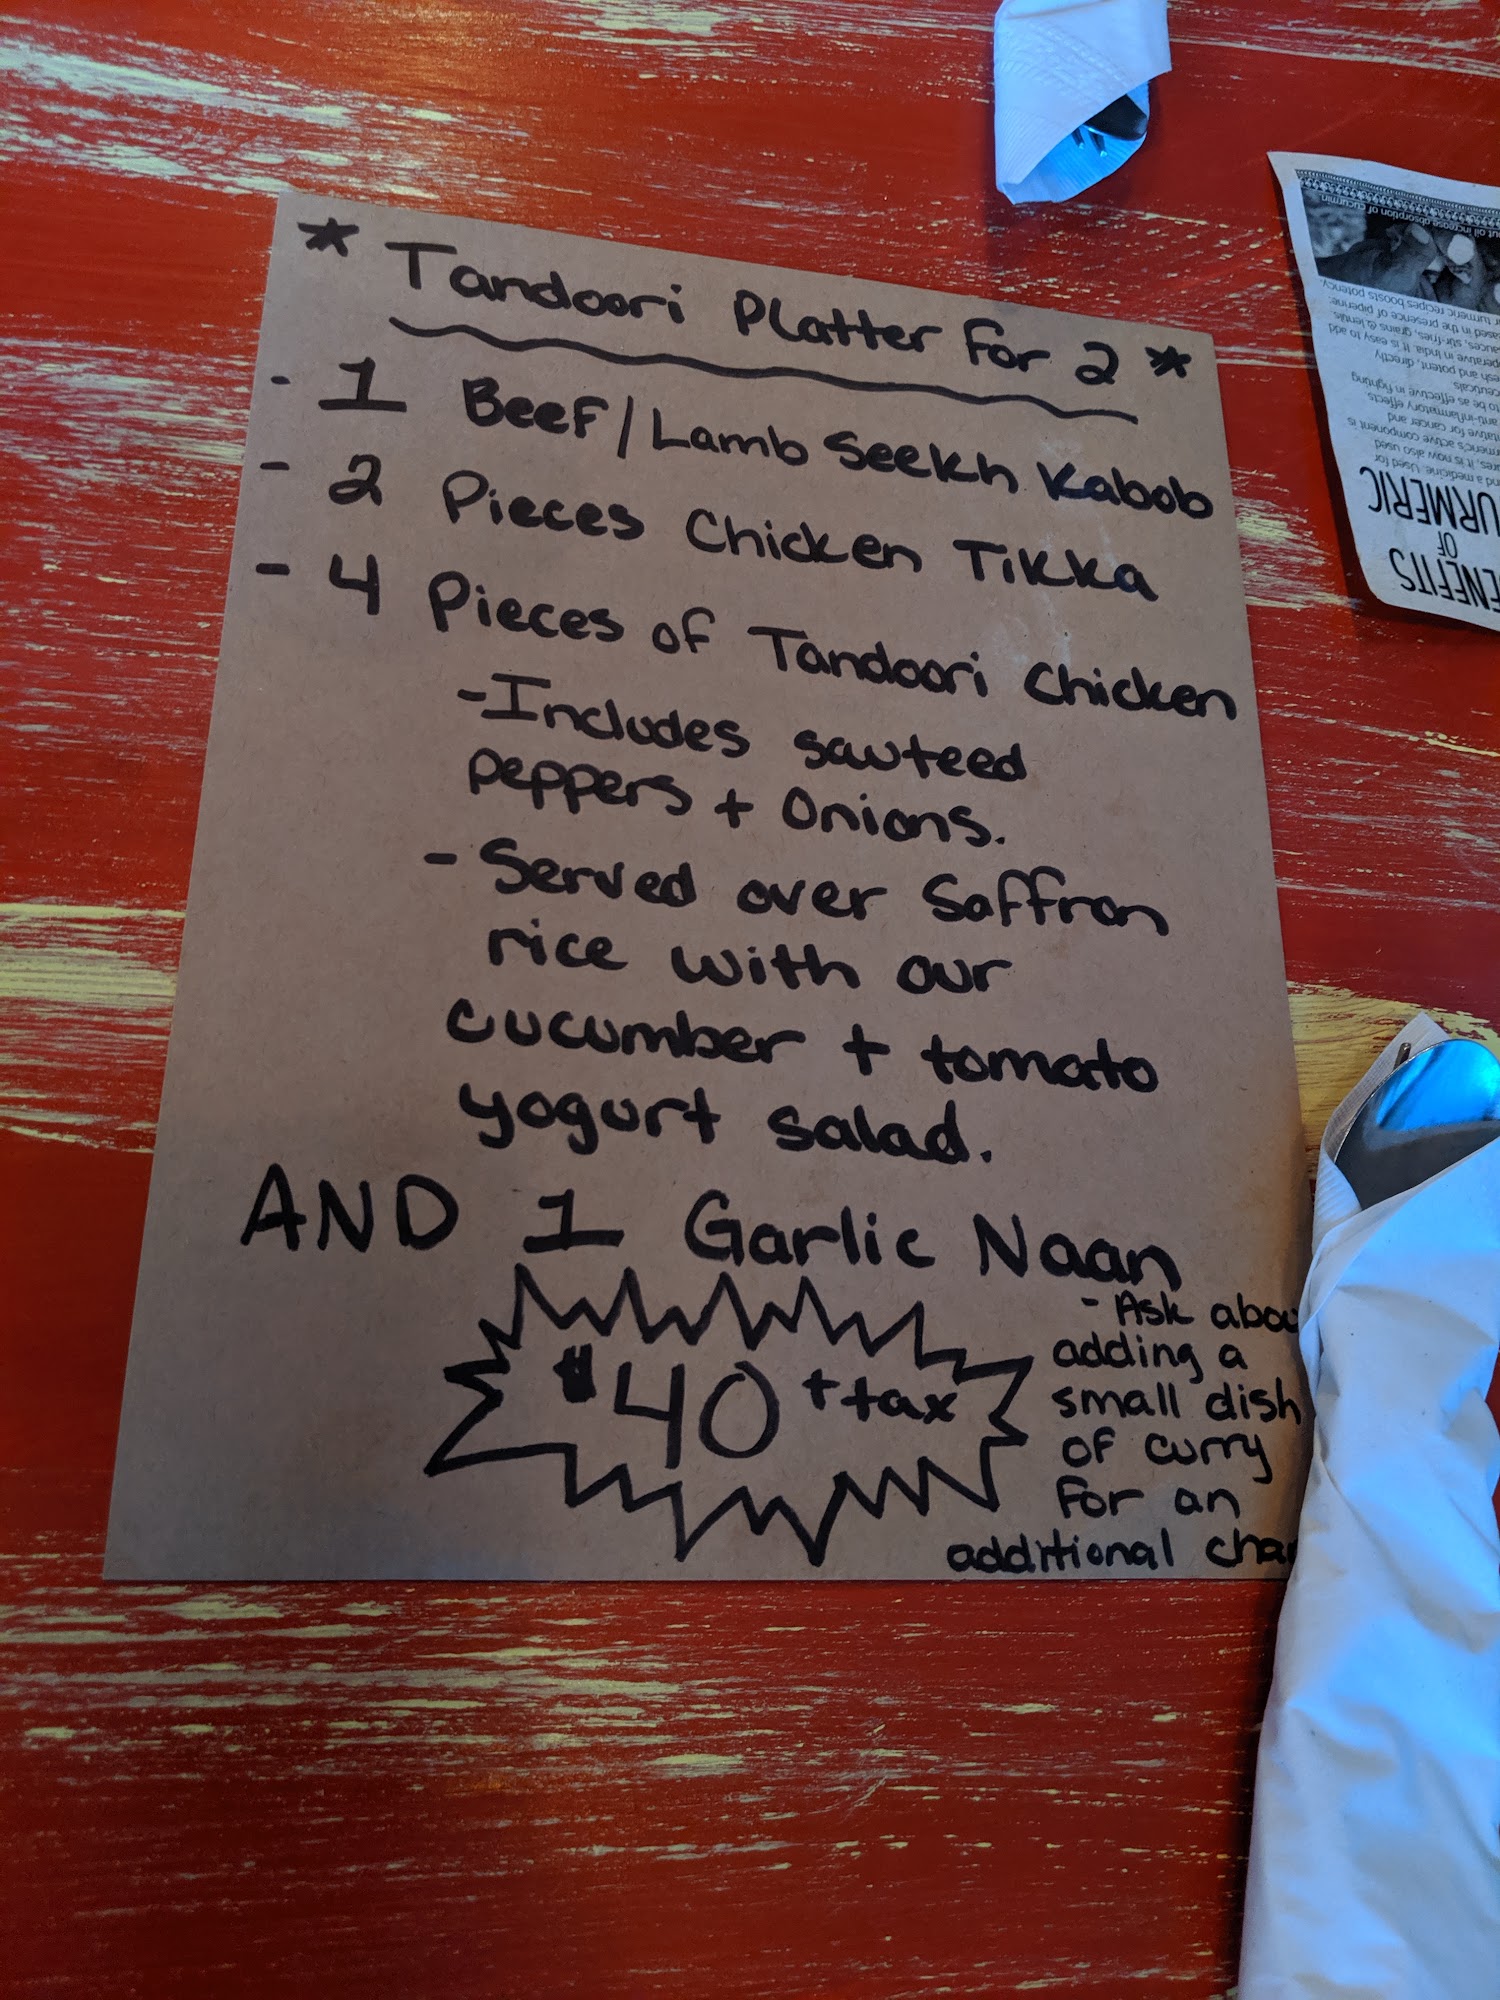 * Tandoori Platter for 2 *
- 1 Beef/Lamb Seekh Kabob
- 2 Pieces Chicken Tikka
- 4 Pieces of Tandoori Chicken
- Includes sauteed
peppers + onions.
- Served over saffron
rice with our
cucumber + tomato
yogurt salad.
AND 1 Garlic Naan
$40 + tax
- Ask abou
adding a
small dish
of curry
for an
additional cha
ENEFITS
OF
URMERIC
nd a medicine. Used for
res, it is now also used
rmeric's active component is
tative for cancer and
anti-inflammatory effects
to be as effective in fighting
ceuticals.
esh and potent, directly
perative in India. It is easy to add
auces, stir-fries, grains & lentils.
ased in the presence of piperine;
r turmeric recipes boosts potency.
out oil increase absorption of cucumin.